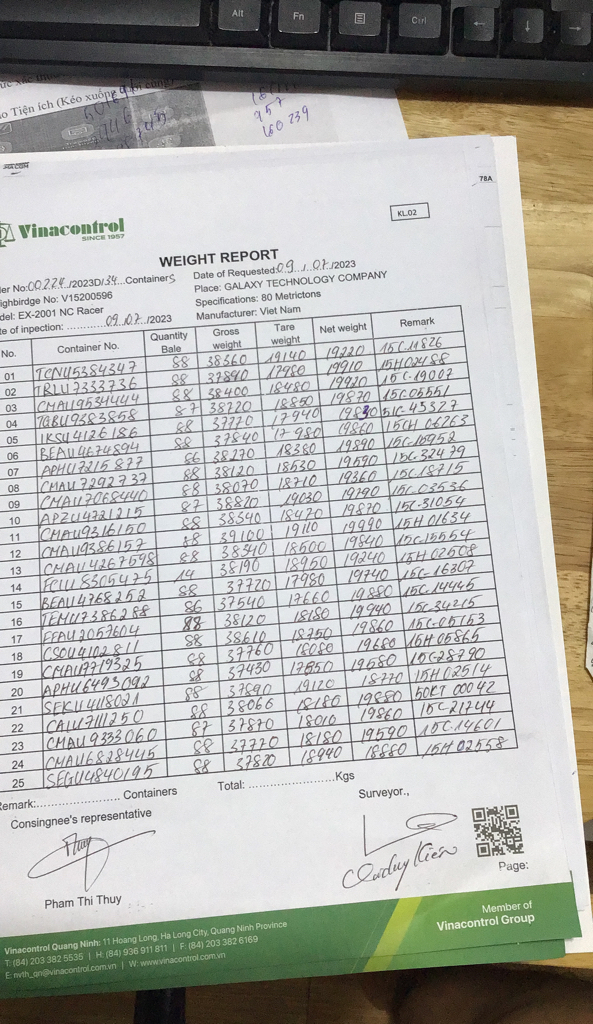 Tiện ích (Kéo xuống
957
160 239
CMA CGM
78A
KL.02
Vinacontrol
SINCE 1957
WEIGHT REPORT
No:00224./2023D/34..Containers Date of Requested:09../.07./2023
Weighbirdge No: V15200596 Place: GALAXY TECHNOLOGY COMPANY
Model: EX-2001 NC Racer Specifications: 80 Metrictons
of inpection: ............09.07../2023 Manufacturer: Viet Nam
No. Container No. Quantity Bale Gross weight Tare weight Net weight Remark
01 TCNU5384347 88 38360 19140 19220 15C 11826
02 TRLU7333736 88 37890 17980 19910 15H02488
03 CMAU9534444 88 38400 18480 19920 15C-19007
04 TGBU9383858 87 38720 18850 19870 15C05551
05 IKSU4126186 88 37770 17940 19830 51C 43327
06 BEAU4674894 88 37840 17980 19860 15CH 06263
07 APHU7215877 86 38270 18380 19890 15C-15952
08 CMAU7292737 88 38120 18530 19590 15C-32479
09 CMAU7068440 88 38070 18710 19360 15C-18715
10 APZU4721215 87 38820 19030 19790 15C-03536
11 CMAU9316150 88 38340 18470 19870 15C-31054
12 CMAU9386157 88 39100 19110 19990 15H 01634
13 CMAU4267598 88 38340 18500 19840 15C-15554
14 FCIU8305475 14 38190 18950 19240 15H 02508
15 BEAU4768252 88 37720 17980 19740 15C-16307
16 TEMU7386288 86 37540 17660 19880 15C-14445
17 FFAU2057604 88 38120 18180 19940 15C-34215
18 CSOU4102811 88 38610 18750 19860 15C-05153
19 CMAU7719325 88 37760 18080 19680 15H05865
20 APHU6493092 88 37430 17850 19580 15C-28790
21 SEKU4118021 88 37890 19120 18770 15H02514
22 CAIU7111250 88 38066 18180 19880 50KT 00042
23 CMAU9333060 87 37870 18010 19860 15C-21744
24 CMAU6828445 88 37770 18180 19590 15C-14601
25 SEGU4840195 88 37820 18940 18880 15H 02558
Remark:........................ Containers Total:........................Kgs
Consingnee's representative Surveyor.,
Thuy
Pham Thi Thuy
Page:
Vinacontrol Quang Ninh: 11 Hoang Long, Ha Long City, Quang Ninh Province
T: (84) 203 382 5535 | H: (84) 936 911 811 | F: (84) 203 382 6169
E: nvth_qn@vinacontrol.com.vn | W: www.vinacontrol.com.vn
Member of
Vinacontrol Group
Alt Fn Ctrl